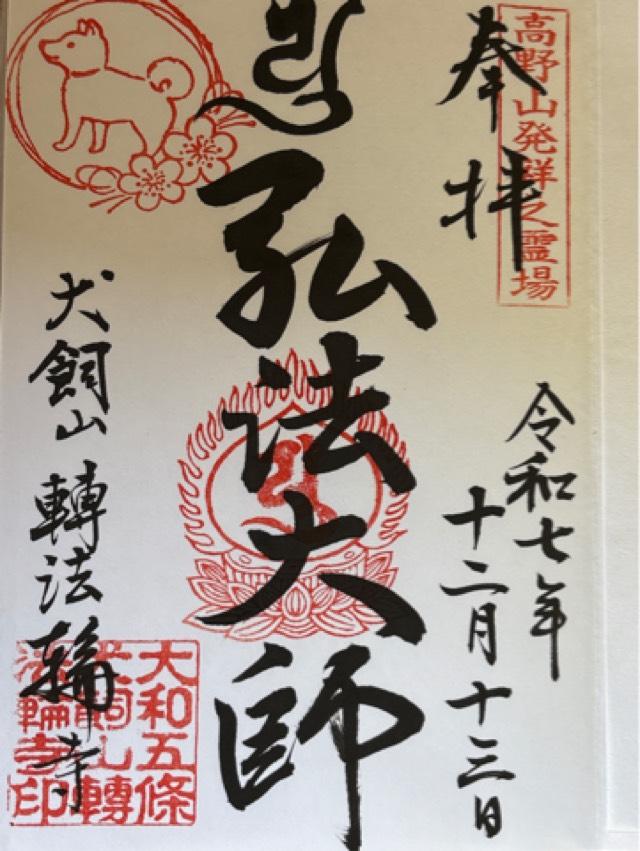 高野山発祥之霊場
奉拝
令和七年
十二月十三日
弘法大師
犬飼山轉法輪寺
大和五條
犬飼山轉
法輪寺印